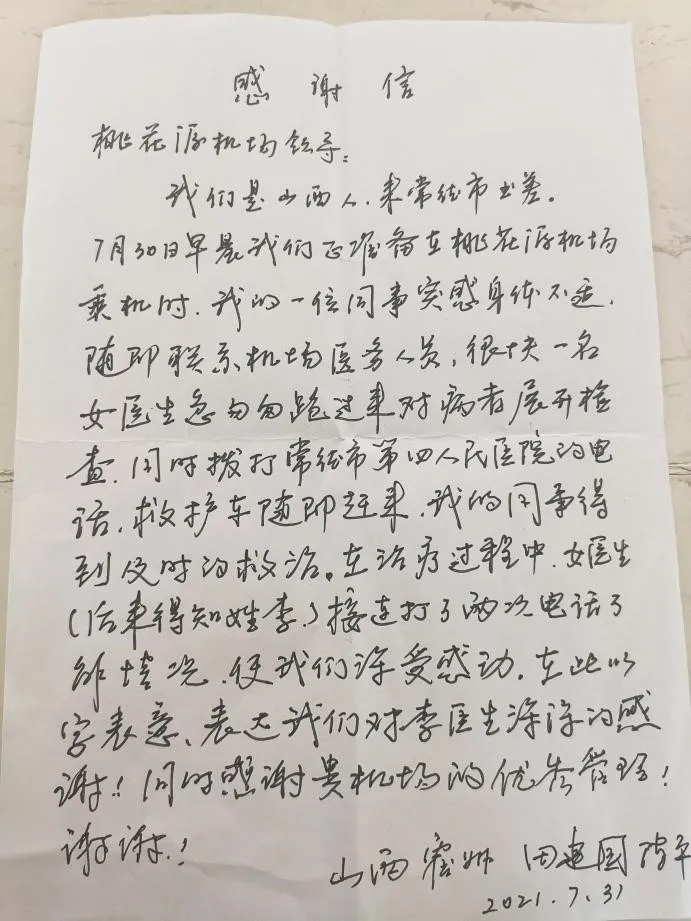 感谢信
桃花源机场领导:
我们是山西人.来常德市出差.
7月30日早晨我们正准备在桃花源机场
乘机时.我的一位同事突感身体不适.
随即联系机场医务人员,很快一名
女医生急匆匆跑过来对病者展开检
查.同时拨打常德市第四人民医院的电
话.救护车随即赶来.我的同事得
到及时的救治。在治疗过程中.女医生
(后来得知姓李)接连打了两次电话了
解情况.使我们深受感动.在此以
字表意、表达我们对李医生深深的感
谢!同时感谢贵机场的优秀管理!
谢谢!
山西霍州 田建国
2021.7.31